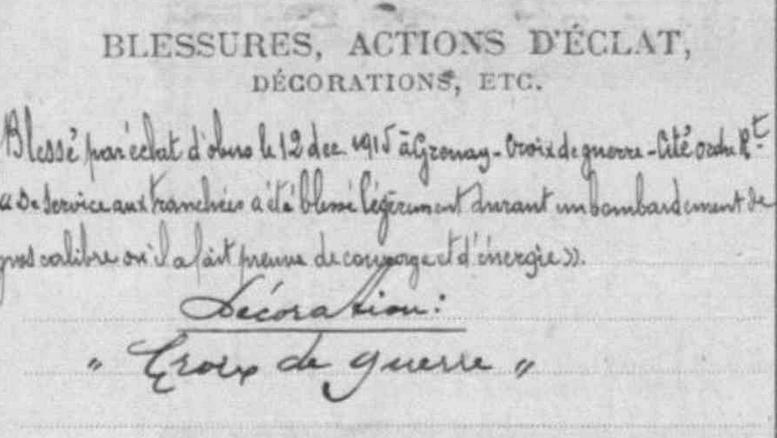 BLESSURES, ACTIONS D'ÉCLAT,
DÉCORATIONS, ETC.
Blessé par éclat d'obus le 12 dec 1915 à Grenay - Croix de guerre - Cité ordre Rt
« De service aux tranchées a été blessé légèrement durant un bombardement de
gros calibre où il a fait preuve de courage et d'énergie ».
Décoration:
" Croix de guerre "